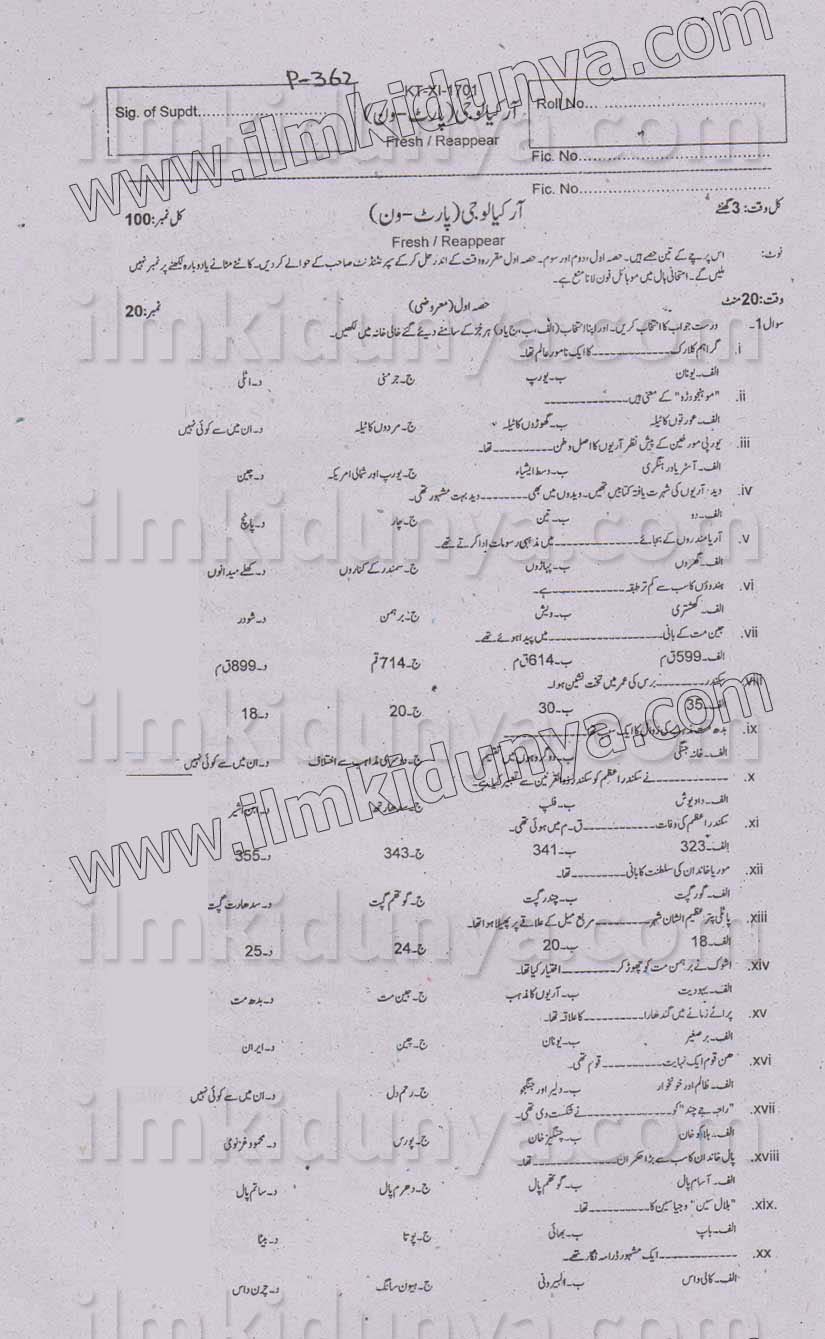 P-362
KT-XI-1701
Sig. of Supdt.............................
آرکیالوجی (پارٹ-ون)
Roll No.................................
Fresh / Reappear
Fic. No.....................................
Fic. No.....................................
کل وقت: 3 گھنٹے
آرکیالوجی (پارٹ-ون)
کل نمبر: 100
Fresh / Reappear
نوٹ: اس پرچے کے تین حصے ہیں۔ حصہ اول، دوم اور سوم۔ حصہ اول مقررہ وقت کے اندر حل کر کے سپرنٹنڈنٹ صاحب کے حوالے کر دیں۔ کاٹنے مٹانے یا دوبارہ لکھنے پر نمبر نہیں
ملیں گے۔ امتحانی ہال میں موبائل فون لانا منع ہے۔
وقت: 20 منٹ
حصہ اول (معروضی)
نمبر: 20
سوال 1- درست جواب کا انتخاب کریں۔ اور اپنا انتخاب (الف، ب، ج یا د) ہر جُز کے سامنے دیئے گئے خالی خانہ میں لکھیں۔
i. گراہم کلارک ____________ کا ایک نامور عالم تھا۔
الف۔ یونان ب۔ یورپ ج۔ جرمنی د۔ اٹلی
ii. "موہنجودڑو" کے معنی ہیں ____________
الف۔ عورتوں کا ٹیلہ ب۔ گھوڑوں کا ٹیلہ ج۔ مردوں کا ٹیلہ د۔ ان میں سے کوئی نہیں
iii. یورپی مورخین کے پیش نظر آریوں کا اصل وطن ____________ تھا۔
الف۔ آسٹریا اور ہنگری ب۔ وسط ایشیاء ج۔ یورپ اور شمالی امریکہ د۔ چین
iv. وید، آریوں کی شہرت یافتہ کتابیں تھیں۔ ویدوں میں بھی ________ وید بہت مشہور تھی۔
الف۔ دو ب۔ تین ج۔ چار د۔ پانچ
v. آریا مندروں کے بجائے ____________ میں مذہبی رسومات ادا کرتے تھے۔
الف۔ گھروں ب۔ پہاڑوں ج۔ سمندر کے کناروں د۔ کھلے میدانوں
vi. ہندوؤں کا سب سے کم تر طبقہ ____________ ہے۔
الف۔ کھشتری ب۔ ویش ج۔ برہمن د۔ شودر
vii. جین مت کے بانی ____________ میں پیدا ہوئے تھے۔
الف۔ 599 ق م ب۔ 614 ق م ج۔ 714 قم د۔ 899 ق م
viii. سکندر ________ برس کی عمر میں تخت نشین ہوا۔
الف۔ 35 ب۔ 30 ج۔ 20 د۔ 18
ix. بدھ مت مذہب کی زوال کا ایک سبب تھا ____________
الف۔ خانہ جنگی ب۔ دو گروہوں میں تقسیم ج۔ دوسری مذاہب سے اختلاف د۔ ان میں سے کوئی نہیں
x. ____________ نے سکندر اعظم کو سکندر ذوالقرنین سے تعبیر کیا ہے۔
الف۔ دادیوش ب۔ فلپ ج۔ سدھارتھا د۔ ابن اثیر
xi. سکندر اعظم کی وفات ____________ ق۔م میں ہوئی تھی۔
الف۔ 323 ب۔ 341 ج۔ 343 د۔ 355
xii. موریا خاندان کی سلطنت کا بانی ____________ تھا۔
الف۔ گور گپت ب۔ چندر گپت ج۔ گوتھم گپت د۔ سدھارت گپت
xiii. پاٹلی پتر عظیم الشان شہر ____________ مربع میل کے علاقے پر پھیلا ہوا تھا۔
الف۔ 18 ب۔ 20 ج۔ 24 د۔ 25
xiv. اشوک نے برہمن مت کو چھوڑ کر ____________ اختیار کیا تھا۔
الف۔ یہودیت ب۔ آریوں کا مذہب ج۔ جین مت د۔ بدھ مت
xv. پرانے زمانے میں گندھارا ____________ کا علاقہ تھا۔
الف۔ برصغیر ب۔ یونان ج۔ چین د۔ ایران
xvi. ھن قوم ایک نہایت ____________ قوم تھی۔
الف۔ ظالم اور خونخوار ب۔ دلیر اور جنگجو ج۔ رحم دل د۔ ان میں سے کوئی نہیں
xvii. "راجہ جے چند" کو ____________ نے شکست دی تھی۔
الف۔ ہلاکو خان ب۔ چنگیز خان ج۔ پورس د۔ محمود غزنوی
xviii. پال خاندان کا سب سے بڑا حکمران ____________ تھا۔
الف۔ آسام پال ب۔ گوتھم پال ج۔ دھرم پال د۔ ساتم پال
xix. "بلال سین" وجیا سین کا ____________ تھا۔
الف۔ باپ ب۔ بھائی ج۔ پوتا د۔ بیٹا
xx. ____________ ایک مشہور ڈرامہ نگار تھے۔
الف۔ کالی داس ب۔ البیرونی ج۔ ہیون سانگ د۔ چرن داس
www.ilmkidunya.com
www.ilmkidunya.com
ilmkidunya.com
ilmkidunya.com
ilmkidunya.com
ilmkidunya.com
ilmkidunya.com
ilmkidunya.com
ilmkidunya.com